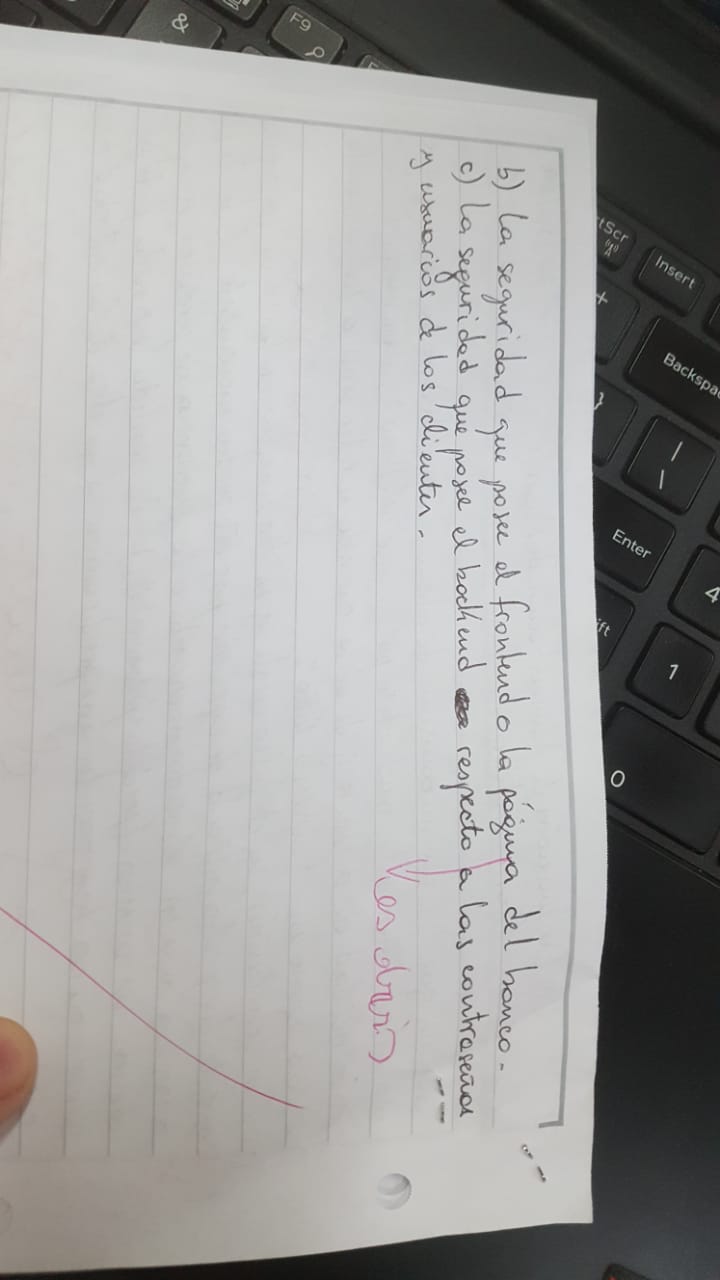 b) La seguridad que posee el frontend o la página del banco.
c) La seguridad que posee el backend respecto a las contraseñas
y usuarios de los clientes.
&
F9
Insert
Backspa
Enter
4
1
0